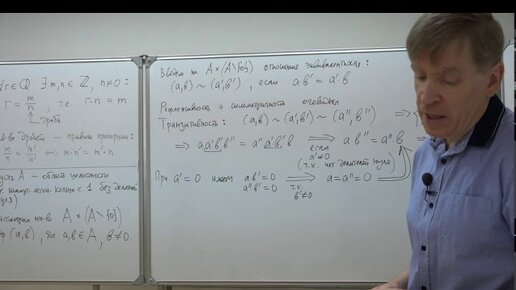 ∀r∈ℚ ∃ m,n ∈ ℤ, n≠0:
r = m/n, т.е. r·n = m
дробь
дробей – правило пропорции:
m/n = m'/n' ⇔ m·n' = m'·n
A – область целостности
кольцо с 1 без
A×(A∖{0})
(a,b), где a,b∈A, b≠0.
Введём на A×(A∖{0}) отношение эквивалентности:
(a,b) ~ (a',b'), если ab' = a'b
Рефлексивность и симметричность очевидны
Транзитивность: (a,b) ~ (a',b') ~ (a'',b'') ⇒
⇒ aa'b'b'' = a''a'b'b ⇒ ab'' = a''b
если a'≠0
(т.к. нет делителей нуля)
При a'=0 имеем ab'=0
a''b'=0 ⇒ a=a''=0
т.к. b'≠0